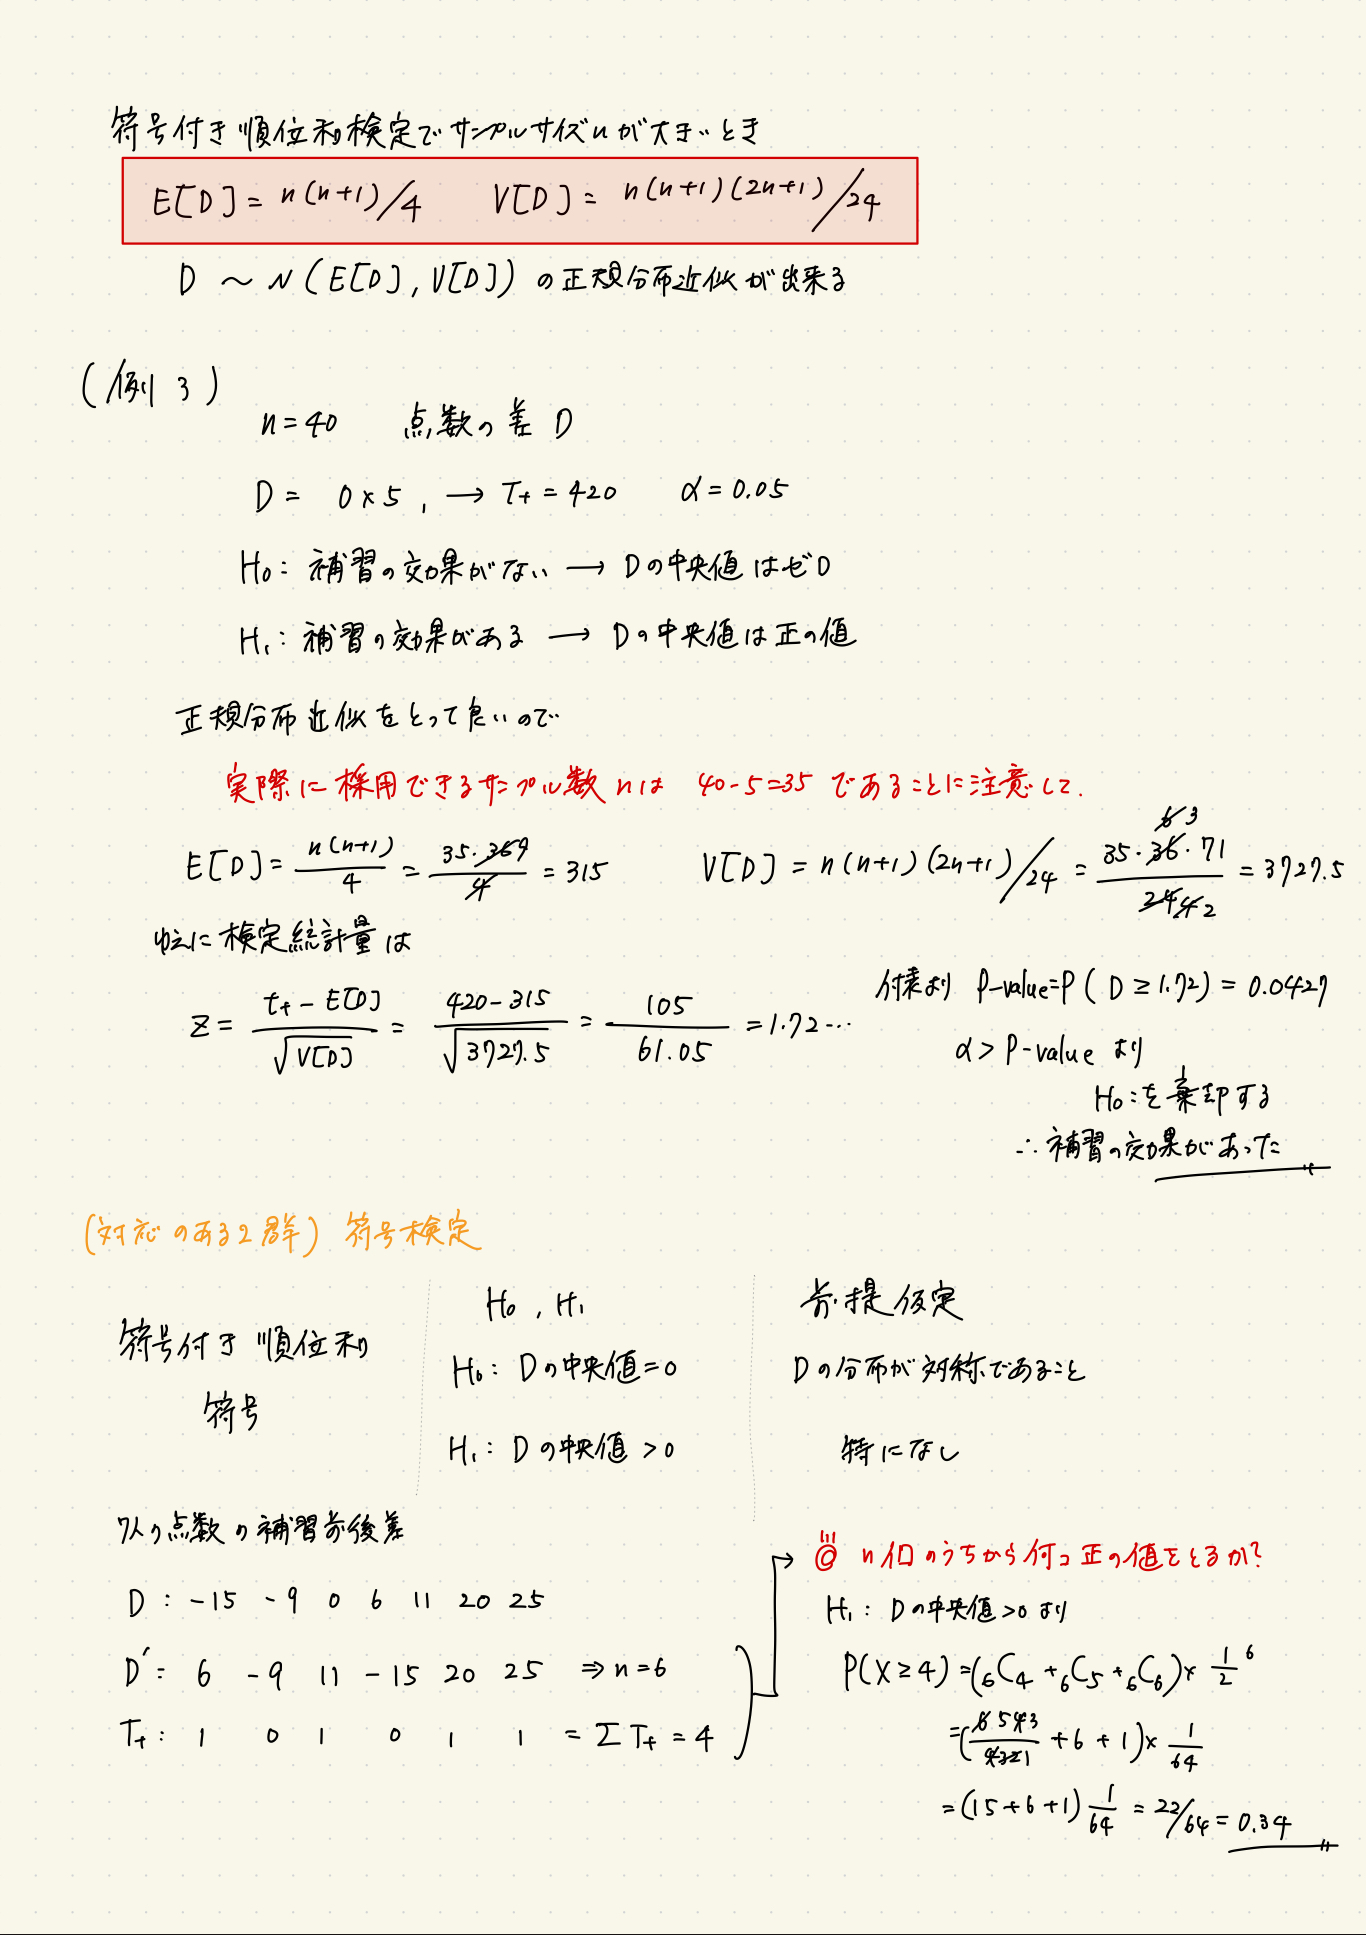 符号付き順位和検定でサンプルサイズnが大きいとき
E[D] = n(n+1)/4 V[D] = n(n+1)(2n+1)/24
D ~ N(E[D], V[D]) の正規分布近似が出来る
(例 3)
n=40 点数の差 D
D = 0×5, → T+ = 420 α = 0.05
H0: 補習の効果がない → Dの中央値はゼロ
H1: 補習の効果がある → Dの中央値は正の値
正規分布近似をとって良いので
実際に採用できるサンプル数nは 40-5=35 であることに注意して.
E[D] = n(n+1)/4 = 35·36 9/4 = 315 V[D] = n(n+1)(2n+1)/24 = 35·36·71 6 3/24 4 2 = 3727.5
ゆえに検定統計量は
Z = (t+ - E[D])/√V[D] = (420-315)/√3727.5 = 105/61.05 = 1.72…
付表より P-value=P(D ≥ 1.72) = 0.0427
α > P-value より
H0:を棄却する
∴ 補習の効果があった
(対応のある2群) 符号検定
H0, H1 前提仮定
符号付き順位和 H0: Dの中央値=0 Dの分布が対称であること
符号 H1: Dの中央値 >0 特になし
7人の点数の補習前後差
D: -15 -9 0 6 11 20 25
D′: 6 -9 11 -15 20 25 ⇒ n=6
T+: 1 0 1 0 1 1 = Σ T+ = 4
◎ n個のうちから何コ正の値をとるか?
H1: Dの中央値>0 より
P(X ≥ 4) = (6C4 + 6C5 + 6C6) × 1/2 6
= (6 5 4 3/4 3 2 1 + 6 + 1) × 1/64
= (15+6+1) 1/64 = 22/64 = 0.34